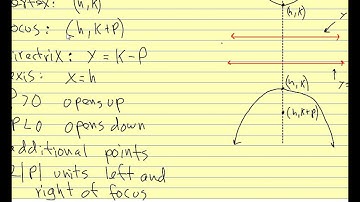 ertex: (h,k)
(h,k)
ocus: (h, K+P)
irectrix: y = K-P
y
xis: x=h
(h,k)
y=
P>0 opens up
(h,k+p)
P<0 opens down
additional points
2|P| units left and
right of focus